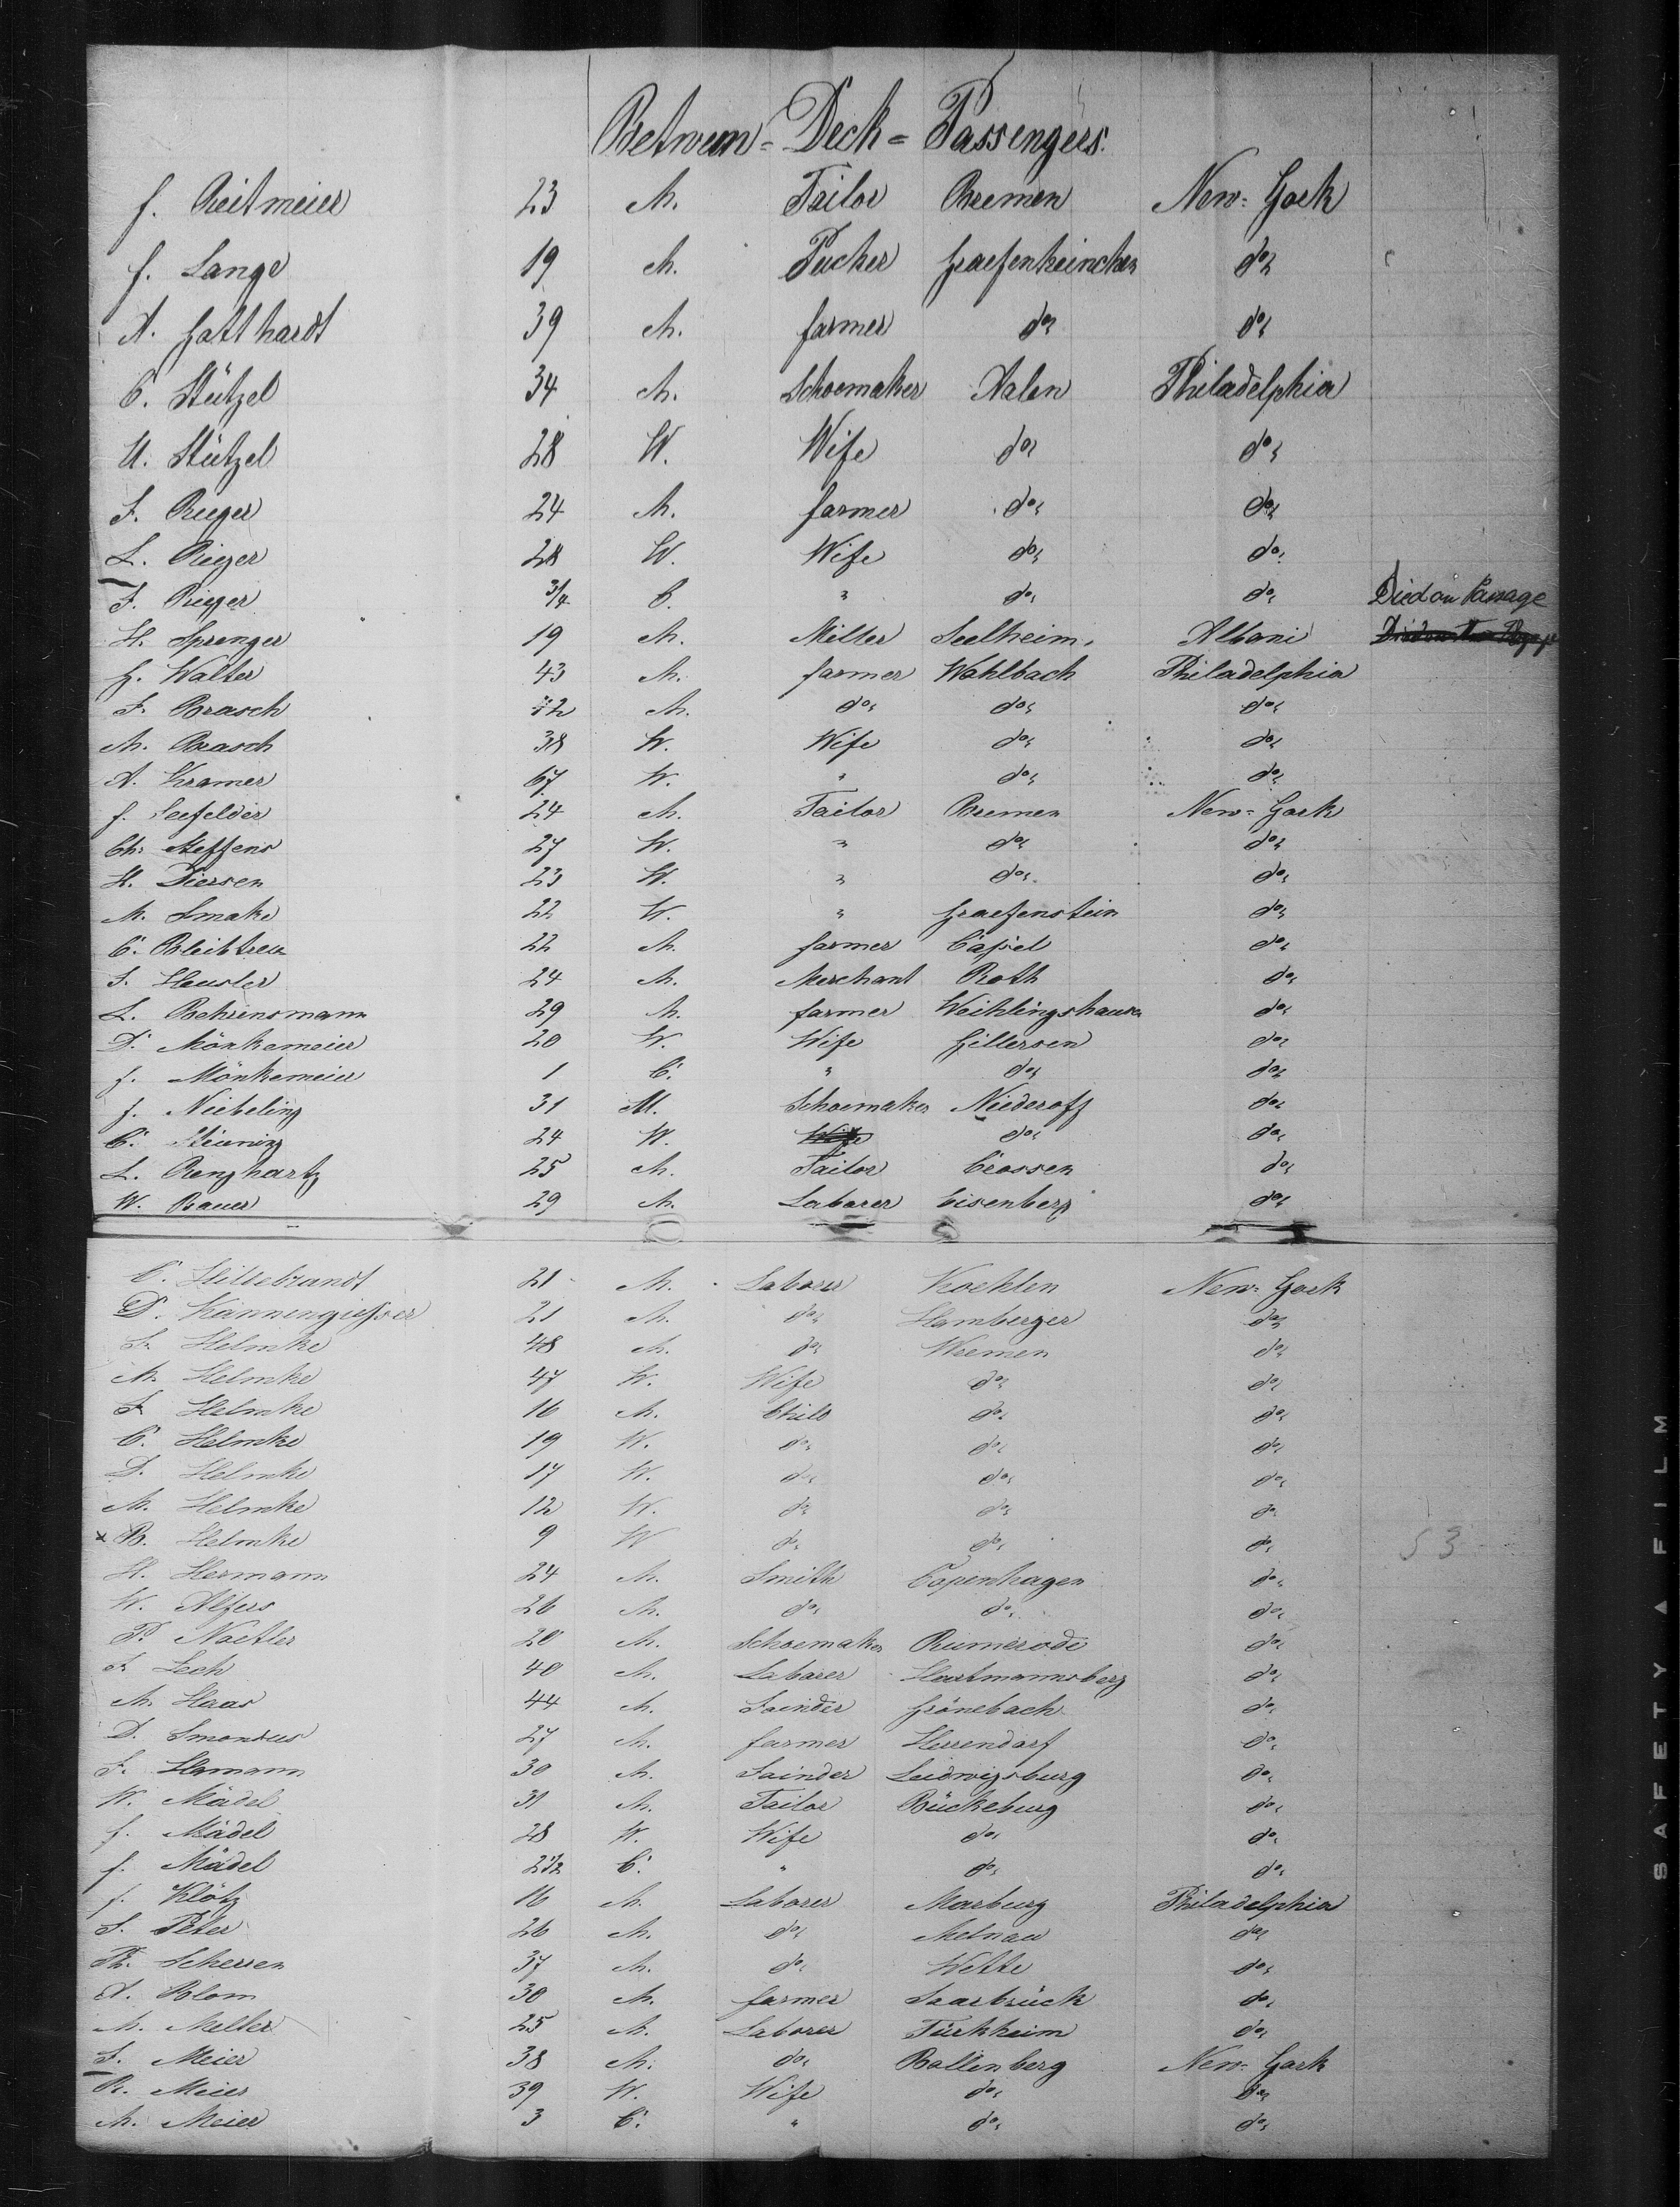 Between-Deck-Passengers.
f. Reitmeier 23 M. Tailor Bremen New-York
f. Lange 19 M. Pucker Graefenheinchen do
A. Gotthardt 39 M. farmer do do
C. Stützel 34 M. Schoemaker Aalen Philadelphia
U. Stützel 28 W. Wife do do
J. Rieger 24 M. farmer do do
L. Rieger 28 W. Wife do do
J. Rieger 3/4 C. " do do Died on Passage
H. Sprenger 19 M. Miller Seelheim. Albani
G. Walter 43 M. farmer Wahlbach Philadelphia
J. Brasch M. do do do
M. Brasch 38 W. Wife do do
A. Kramer 67 W. " do do
f. Seefelder 24 M. Tailor Bremen New-York
Ch. Steffens 27 W. " do do
H. Diersen 23 W. " do do
M. Smake 22 W. " Graefenstein do
C. Bleibtreu 22 M. farmer Capel do
J. Heusler 24 M. Merchant Roth do
L. Behrensmann 29 M. farmer Weihlingshausen do
D. Mönkemeier 20 W. Wife Gillersen do
f. Mönkemeier 1 C. " do do
f. Niebeling 31 M. Schoemaker Niederoff do
C. 24 W. Wife do do
L. Renghartz 25 M. Tailor Crossen do
W. Bauer 29 M. Laborer Eisenberg do
C. Hillebrandt 21 M. Laborer Koehlen New-York
D. Kannengiesser 21 M. do Hamberger do
J. Helmke 48 M. do Weemen do
M. Helmke 47 W. Wife do do
J. Helmke 16 M. Child do do
C. Helmke 19 W. do do do
D. Helmke 17 W. do do do
M. Helmke 12 W. do do do
x B. Helmke 9 W do do do 53
H. Hermann 24 M. Smith Copenhagen do
W. Alfers 26 M. do do do
P. Noetler 20 M. Schoemaker Rumerode do
J. Lech 40 M. Laborer Hartmannsberg do
M. Haas 44 M. Jainder Grönebach do
D. Smondus 27 M. farmer Herrendorf do
J. Hamann 30 M. Jainder Ludwigsburg do
W. Mädel 31 M. Tailor Bückeburg do
f. Mädel 28 W. Wife do do
f. Mädel 2 1/2 C. " do do
f. Klötz 16 M. Laborer Marburg Philadelphia
J. Peter 26 M. do Melnau do
Th. Scherren 37 M. do Wette do
A. Blom 30 M. farmer Saarbrück do
M. Meller 25 M. Laborer Türkheim do
J. Meier 38 M. do Ballenberg New-York
R. Meier 39 W. Wife do do
M. Meier 3 C. " do do
SAFETY ▲ FILM